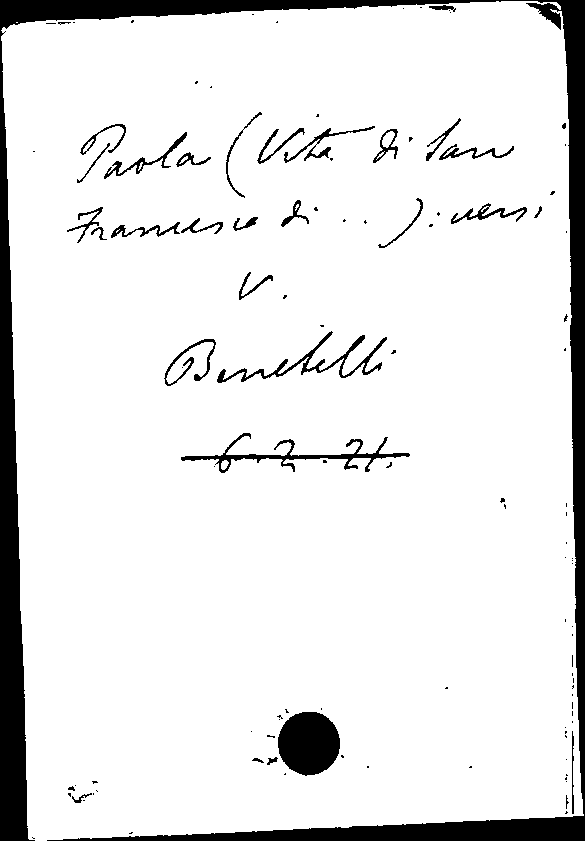 Paola (Vita di San
Francesco di . . ) : versi
V.
Benetelli
6.2.21.